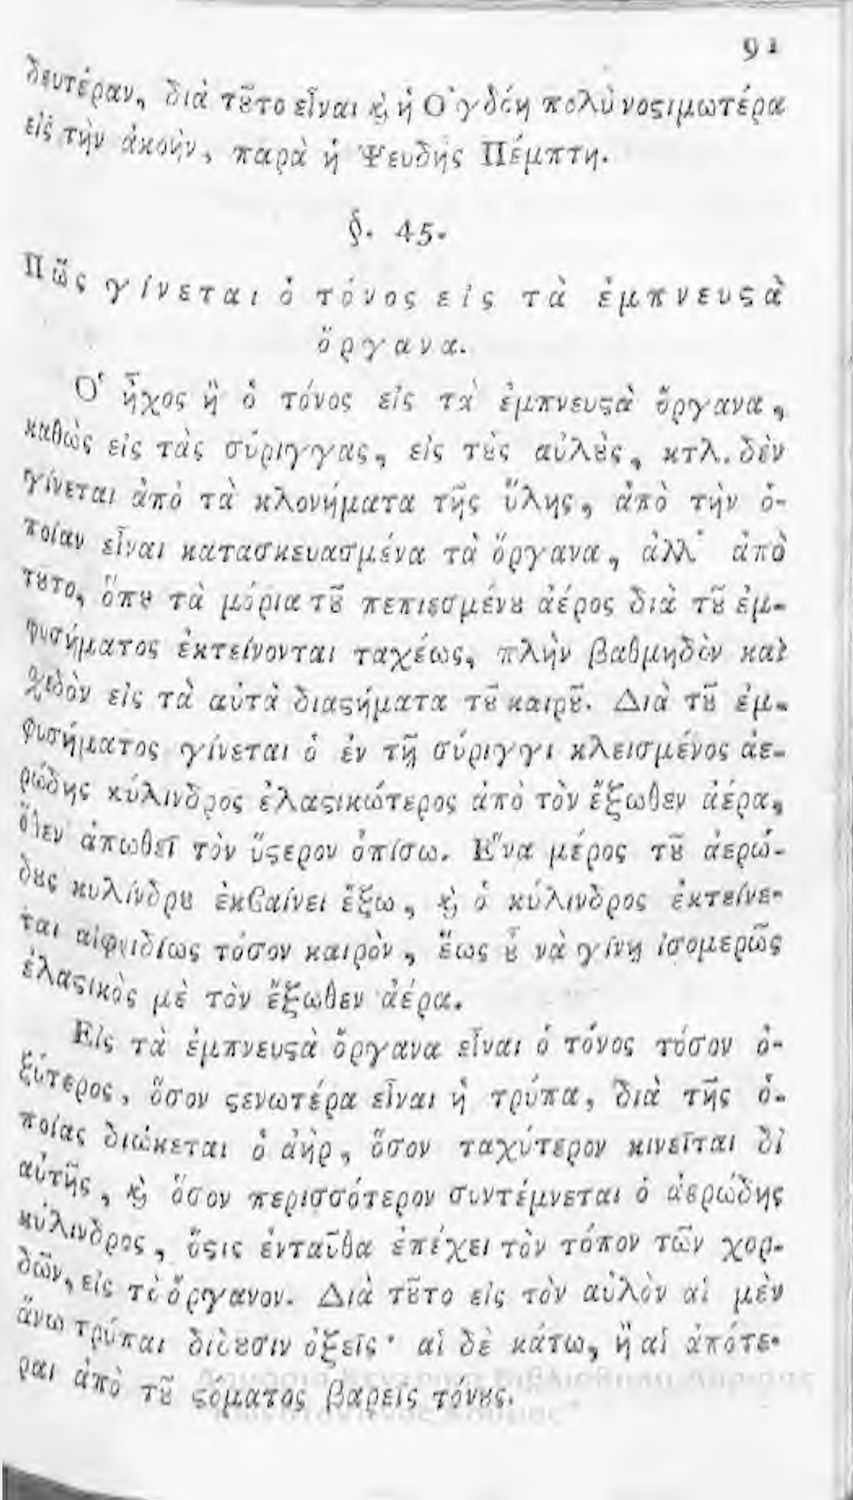 91
δευτέραν, διὰ τȣ͂το εἶναι ϗ̀ ἡ Ο᾿γδόη πολὺ νοϛιμωτέρα
εἰς τὴν ἀκοὴν, παρὰ ἡ Ψευδὴς Πέμπτη.
§. 45.
Πῶς γίνεται ὁ τόνος εἰς τὰ ἐμπνευϛὰ
ὄργανα.
Ο῾ ἦχος ἢ ὁ τόνος εἰς τὰ ἐμπνευϛὰ ὄργανα,
καθὼς εἰς τὰς σύριγγας, εἰς τȣ̀ς αὐλȣ̀ς, κτλ. δὲν
γίνεται ἀπὸ τὰ κλονήματα τῆς ὕλης, ἀπὸ τὴν ὁ-
ποίαν εἶναι κατασκευασμένα τὰ ὄργανα, ἀλλ᾿ ἀπὸ
τȣ͂το, ὅπȣ τὰ μόρια τȣ͂ πεπιεσμένȣ ἀέρος διὰ τȣ͂ ἐμ-
φυσήματος ἐκτείνονται ταχέως, πλὴν βαθμηδὸν καὶ
χεδὸν εἰς τὰ αὐτὰ διαϛήματα τȣ͂ καιρȣ͂. Διὰ τȣ͂ ἐμ-
φυσήματος γίνεται ὁ ἐν τῇ σύριγγι κλεισμένος ἀε-
ρώδης κύλινδρος ἐλαϛικώτερος ἀπὸ τὸν ἔξωθεν ἀέρα,
ὅθεν ἀπωθεῖ τὸν ὕϛερον ὀπίσω. Ἕνα μέρος τȣ͂ ἀερώ-
δȣς κυλίνδρȣ ἐκβαίνει ἔξω, ϗ̀ ὁ κύλινδρος ἐκτείνε-
ται αἰφνιδίως τόσον καιρὸν, ἕως ȣ̔͂ νὰ γίνῃ ἰσομερῶς
ἐλαϛικὸς μὲ τὸν ἔξωθεν ἀέρα.
Εἰς τὰ ἐμπνευϛὰ ὄργανα εἶναι ὁ τόνος τόσον ὀ-
ξύτερος, ὅσον ϛενωτέρα εἶναι ἡ τρύπα, διὰ τῆς ὁ-
ποίας διώκεται ὁ ἀὴρ, ὅσον ταχύτερον κινεῖται δι᾿
αὐτῆς, ϗ̀ ὅσον περισσότερον συντέμνεται ὁ ἀερώδης
κύλινδρος, ὅϛις ἐνταῦθα ἐπέχει τὸν τόπον τῶν χορ-
δῶν, εἰς τὸ ὄργανον. Διὰ τȣ͂το εἰς τὸν αὐλὸν αἱ μὲν
ἄνω τρύπαι δίδȣσιν ὀξεῖς· αἱ δὲ κάτω, ἢ αἱ ἀπότε-
ραι ἀπὸ τȣ͂ ϛόματος βαρεῖς τόνȣς.